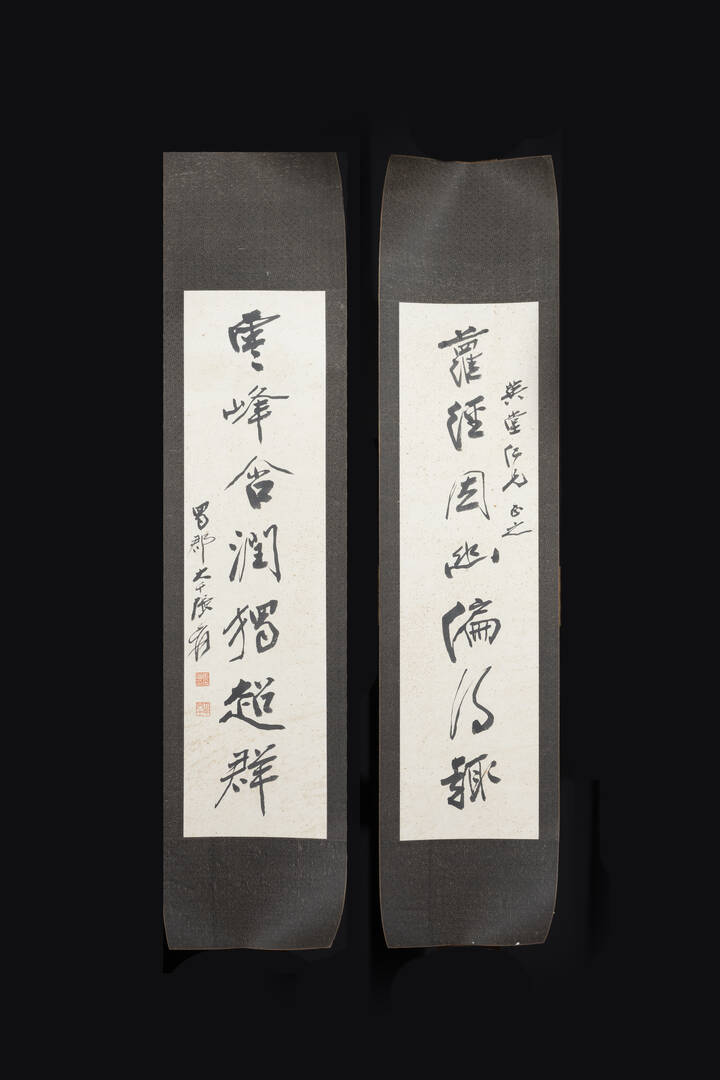 堂仁兄正之
蘿徑因幽偏得趣
雲峰含潤獨超群
蜀郡大千張爰